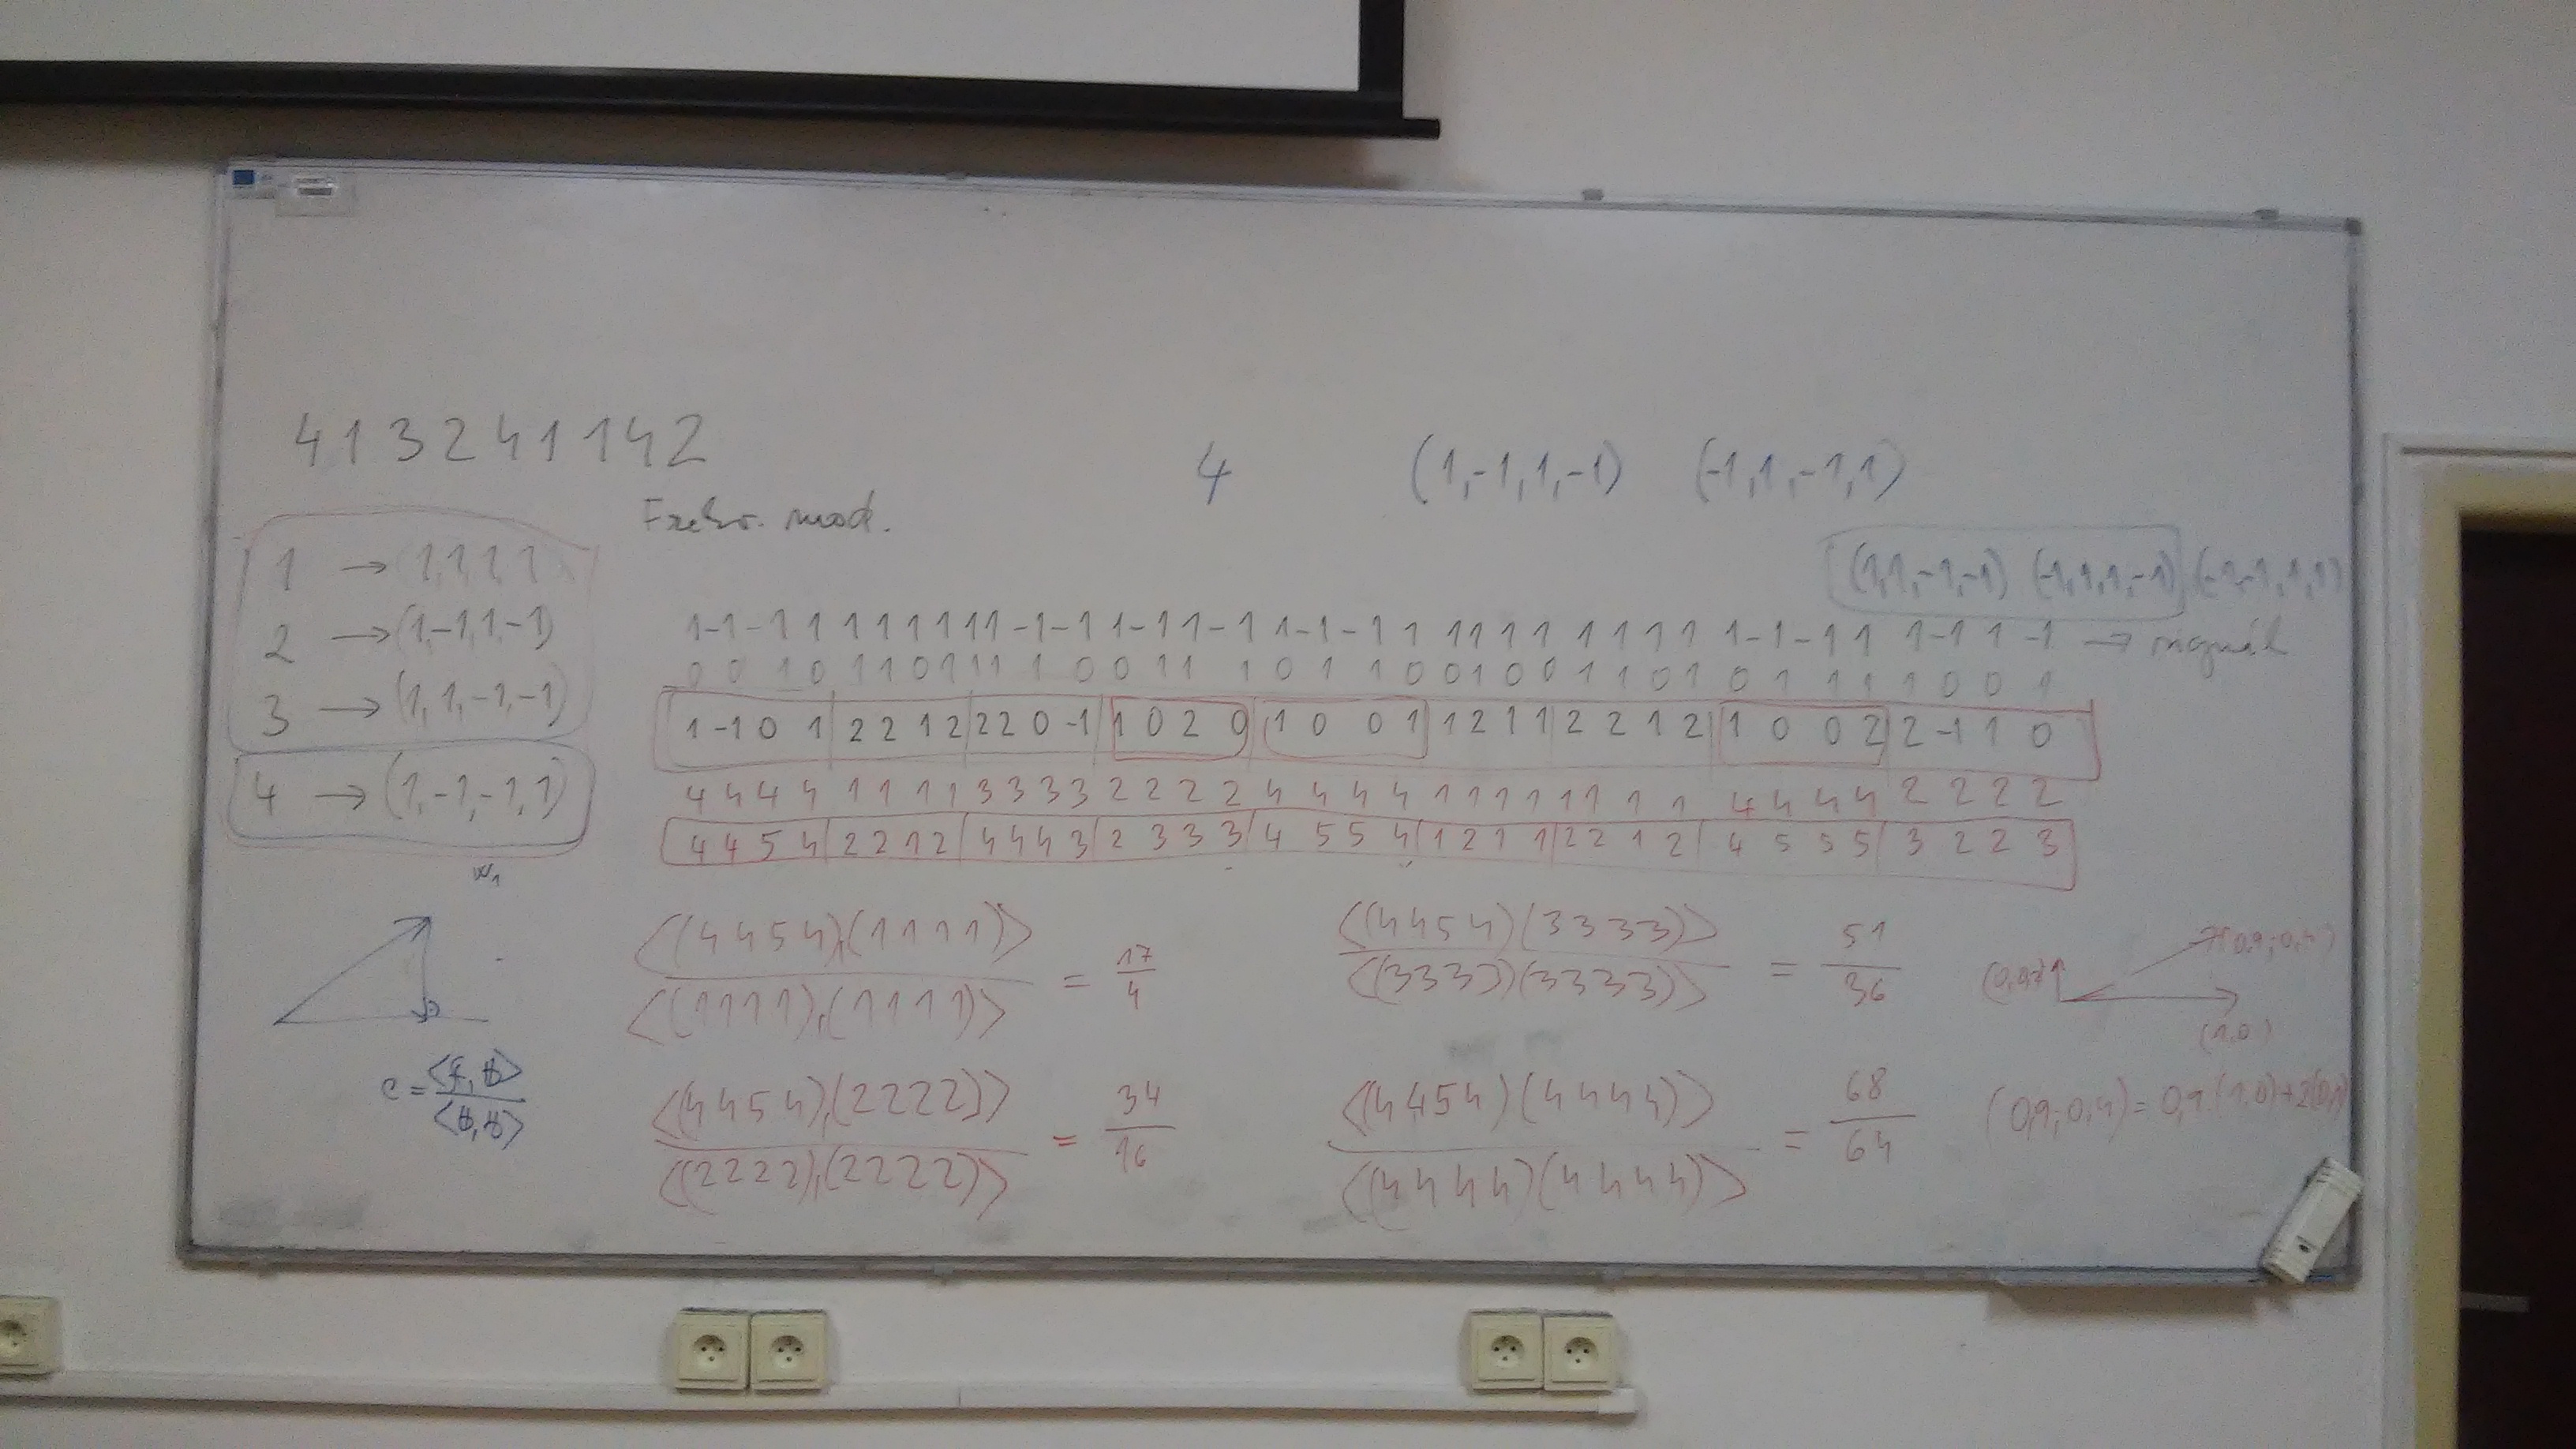 413241142
4 (1,-1,1,-1) (-1,1,-1,1)
mod.
(1,1,-1,-1) (-1,1,1,-1) (-1,-1,1,1)
1 → (1,1,1,1
2 → (1,-1,1,-1)
3 → (1,1,-1,-1)
4 → (1,-1,-1,1)
1 -1 -1 1 1 1 1 1 1 1 -1 -1 1 -1 1 -1 1 -1 -1 1 1 1 1 1 1 1 1 1 1 -1 -1 1 1 -1 1 -1 →
0 0 1 0 1 1 0 1 1 1 1 0 0 1 1 1 0 1 1 0 0 1 0 0 1 1 0 1 0 1 1 1 1 0 0 1
1 -1 0 1 2 2 1 2 2 2 0 -1 1 0 2 0 1 0 0 1 1 2 1 1 2 2 1 2 1 0 0 2 2 -1 1 0
4 4 4 4 1 1 1 1 3 3 3 3 2 2 2 2 4 4 4 4 1 1 1 1 1 1 1 1 4 4 4 4 2 2 2 2
4 4 5 4 2 2 1 2 4 4 4 3 2 3 3 3 4 5 5 4 1 2 1 1 2 2 1 2 4 5 5 5 3 2 2 3
w1
<(4 4 5 4),(1 1 1 1)>
<(1 1 1 1),(1 1 1 1)>
= 17
4
<(4 4 5 4)(3 3 3 3)>
<(3 3 3 3)(3 3 3 3)>
= 51
36
(1,0)
<(4 4 5 4),(2 2 2 2)>
<(2 2 2 2),(2 2 2 2)>
= 34
16
<(4 4 5 4)(4 4 4 4)>
<(4 4 4 4)(4 4 4 4)>
= 68
64
(0,9;0,4) = 0,9(1,0)+2(0,